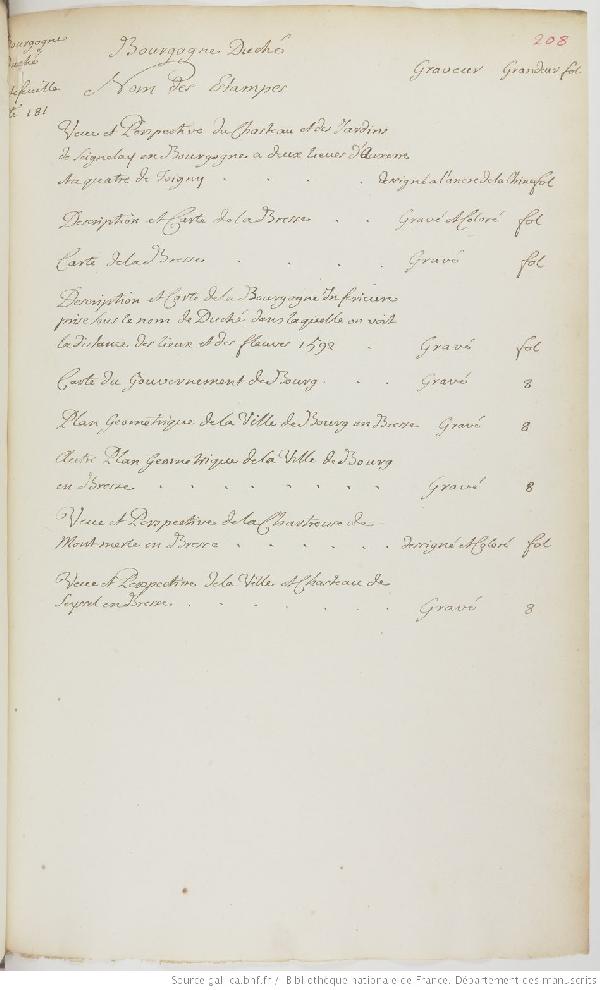 Bourgogne
Duché
tefeuille
té 181
208
Bourgogne Duché
Nom des Estampes
Graveur Grandeur fol
Veue et Perspective du Chasteau et des Jardins
de Seignelay en Bourgogne a deux lieues d'Auxerre
Au quatre de Joigny . . . . dessigné a l'ancre de la Chine fol
Description et Carte de la Bresse . . Gravé et Coloré fol
Carte de la Bresse . . . . Gravé fol
Description et Carte de la Bourgogne Inferieure
prise sous le nom de Duché dans laquelle on voit
la distance des lieux et des fleuves 1592 . Gravé fol
Carte du Gouvernement de Bourg . . . Gravé 8
Plan Geometrique de la Ville de Bourg en Bresse Gravé 8
Autre Plan Geometrique de la Ville de Bourg
en Bresse . . . . . . . . Gravé 8
Veue et Perspective de la Chartreuse de
Montmerle en Bresse . . . . . . dessigné et Coloré fol
Veue et Perspective de la Ville et Chasteau de
Seyssel en Bresse . . . . . . . Gravé 8
Source gallica.bnf.fr / Bibliothèque nationale de France. Département des manuscrits